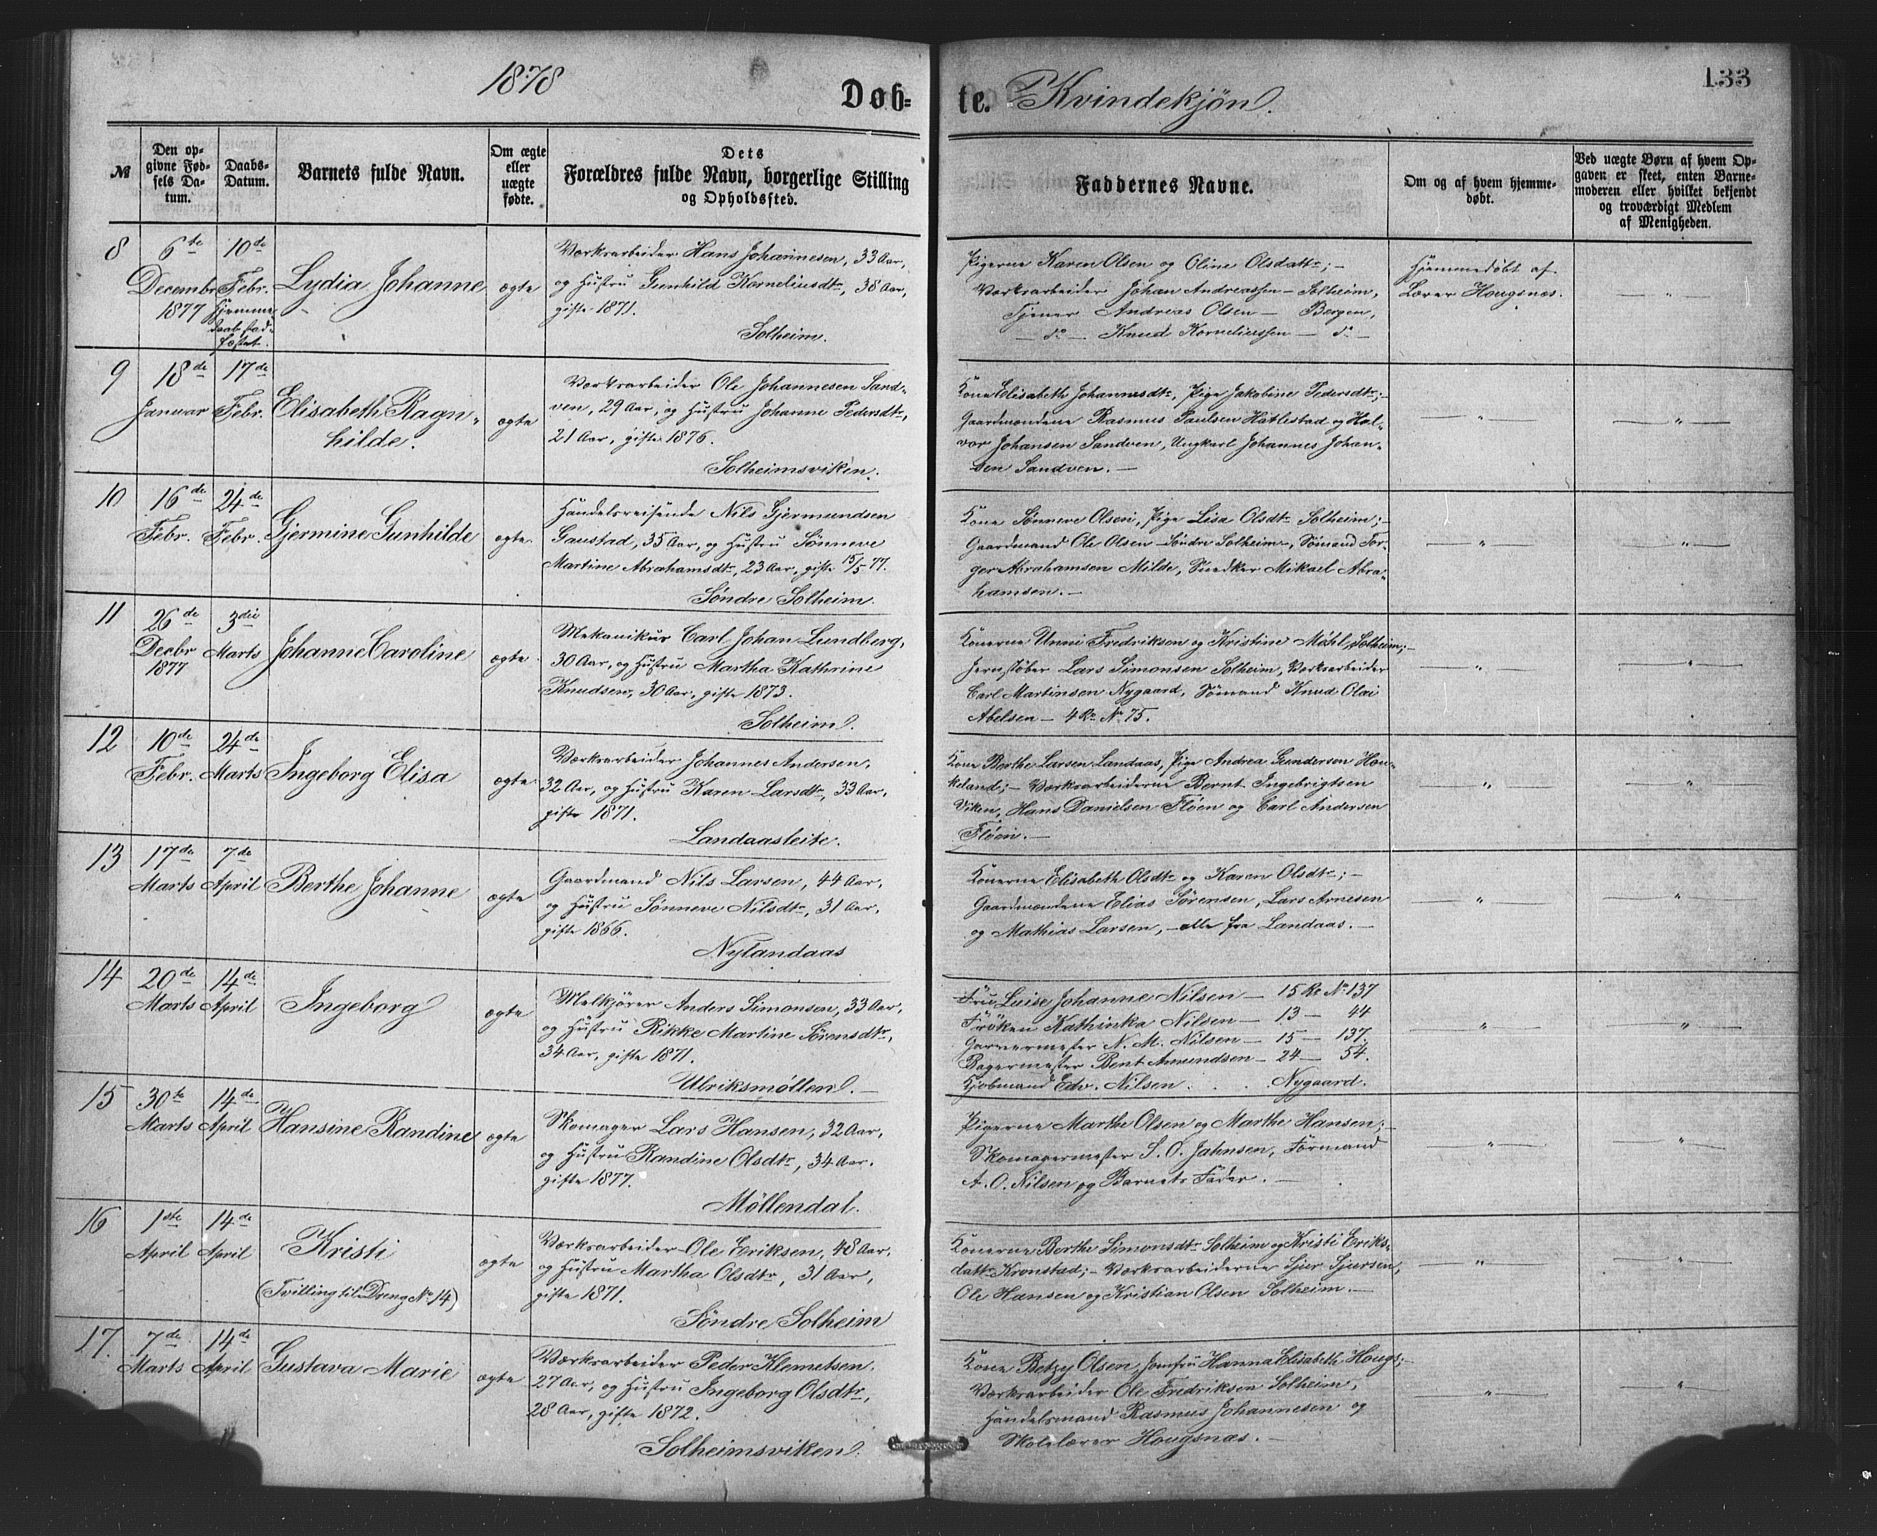 1878
Døb-
te. Kvindekjøn.
133
№
Den op-
givne Fød-
sels Da-
tum.
Daabs-
Datum.
Barnets fulde Navn.
Om ægte
eller
uægte
fødte.
Dets
Forældres fulde Navn, borgerlige Stilling
og Opholdssted.
Faddernes Navne.
Om og af hvem hjemme-
døbt.
Ved uægte Børn af hvem Op-
gaven er skeet, enten Barne-
moderen eller hvilket bekjendt
og troværdigt Medlem
af Menigheden.
8
6te
Decembr
1877
10de
Febr.
Hjemme-
daab stad-
fæstet.
Lydia Johanne
ægte
Værksarbeider Hans Johannesen, 33 Aar,
og Hustru Gunhild Kornelinsdtr, 38 Aar,
gifte 1871.
Solheim.
Pigerne Karen Olsen og Oline Olsdattr; -
Værksarbeider Johan Andreassen - Solheim,
Tjener Andreas Olsen - Bergen,
- do - Knud Korneliussen - do -
Hjemmedøbt af
Lærer Hougsnæs.
— " —
9
18de
Januar
17de
Febr.
Elisabeth Ragn-
hilde.
ægte
Værksarbeider Ole Johannesen Sand-
ven, 29 Aar, og Hustru Johanne Pedersdtr,
21 Aar, gifte 1876.
Solheimsviken.
Kone Elisabeth Johannesdtr, Pige Jakobine Pedersdtr; -
Gaardmændene Rasmus Paulsen Hatlestad og Hal-
vor Johansen Sandven, Ungkarl Johannes Johan-
sen Sandven. -
— " —
— " —
10
16de
Febr.
24de
Febr.
Gjermine Gunhilde
ægte
Handelsreisende Nils Gjermundsen
Gaustad, 35 Aar, og Hustru Sønneve
Martine Abrahamsdtr, 23 Aar, gifte 15/5 77.
Søndre Solheim.
Kone Sønneve Olsen, Pige Lisa Olsdtr Solheim; -
Gaardmand Ole Olsen Søndre Solheim, Sømand Tor-
ger Abrahamsen Milde, Snedker Mikael Abra-
hamsen. -
— " —
— " —
11
26de
Decbr
1877
3die
Marts
Johanne Caroline
ægte
Mekanikus Carl Johan Lundberg,
30 Aar, og Hustru Martha Kathrine
Knudsen, 30 Aar, gifte 1873.
Solheim.
Konerne Unni Fredriksen og Kristine Møhl, Solheim; -
Jernstøber Lars Simonsen Solheim, Værksarbeider
Carl Martinsen Nygaard, Sømand Knud Olai
Abelsen - 4 Re No 75.
— " —
— " —
12
10de
Febr.
24de
Marts
Ingeborg Elisa
ægte
Værksarbeider Johannes Andersen,
32 Aar, og Hustru Karen Larsdtr, 33 Aar,
gifte 1871.
Landaasleite.
Kone Berthe Larsen Landaas, Pige Andrea Gundersen Hou-
keland; - Værksarbeiderne Bernt Ingebrigtsen
Viken, Hans Danielsen Fløen og Carl Andersen
Fløen. -
— " —
— " —
13
17de
Marts
7de
April
Berthe Johanne
ægte
Gaardmand Nils Larsen, 44 Aar,
og Hustru Sønneve Nilsdtr, 31 Aar,
gifte 1866.
Nylandaas
Konerne Elisabeth Olsdtr og Karen Olsdtr; -
Gaardmændene Elias Sørensen, Lars Arnesen
og Mathias Larsen, - alle fra Landaas. -
— " —
— " —
14
20de
Marts
14de
April
Ingeborg
ægte
Melkjører Anders Simonsen, 33 Aar,
og Hustru Rikke Martine Sørensdtr,
34 Aar, gifte 1871.
Ulriksmøllen. -
Fru Luise Johanne Nilsen - 15 Re No 137
Frøken Kathinka Nilsen - 13 - 44
Garvermester N. M. Nilsen - 15 - 137.
Bagermester Bent Amundsen - 24 - 54.
Kjøbmand Edv. Nilsen . . . Nygaard.
— " —
— " —
15
30te
Marts
14de
April
Hansine Randine
ægte
Skomager Lars Hansen, 32 Aar,
og Hustru Randine Olsdtr, 34 Aar.
gifte 1877.
Møllendal.
Pigerne Marthe Olsen og Marthe Hansen; -
Skomagermester S. O. Jahnsen, Formand
A. O. Nilsen og Barnets Fader. -
— " —
— " —
16
1ste
April
14de
April
Kristi
(Tvilling til Dreng No 14)
ægte
Værksarbeider Ole Eriksen, 48 Aar,
og Hustru Martha Olsdtr, 31 Aar,
gifte 1871.
Søndre Solheim
Konerne Berthe Simonsdtr Solheim og Kristi Eriks-
dattr Kronstad; - Værksarbeiderne Sjur Sjursen,
Ole Hansen og Kristian Olsen Solheim. -
— " —
— " —
17.
7de
Marts
14de
April
Gustava Marie
ægte
Værksarbeider Peder Klemetsen,
27 Aar, og Hustru Ingeborg Olsdtr,
28 Aar, gifte 1872.
Solheimsviken.
Kone Betzy Olsen, Jomfru Hanna Elisabeth Hougs; -
Værksarbeider Ole Fredriksen Solheim,
Handelsmand Rasmus Johannesen og
Skolelærer Hougsnæs. -
— " —
— " —